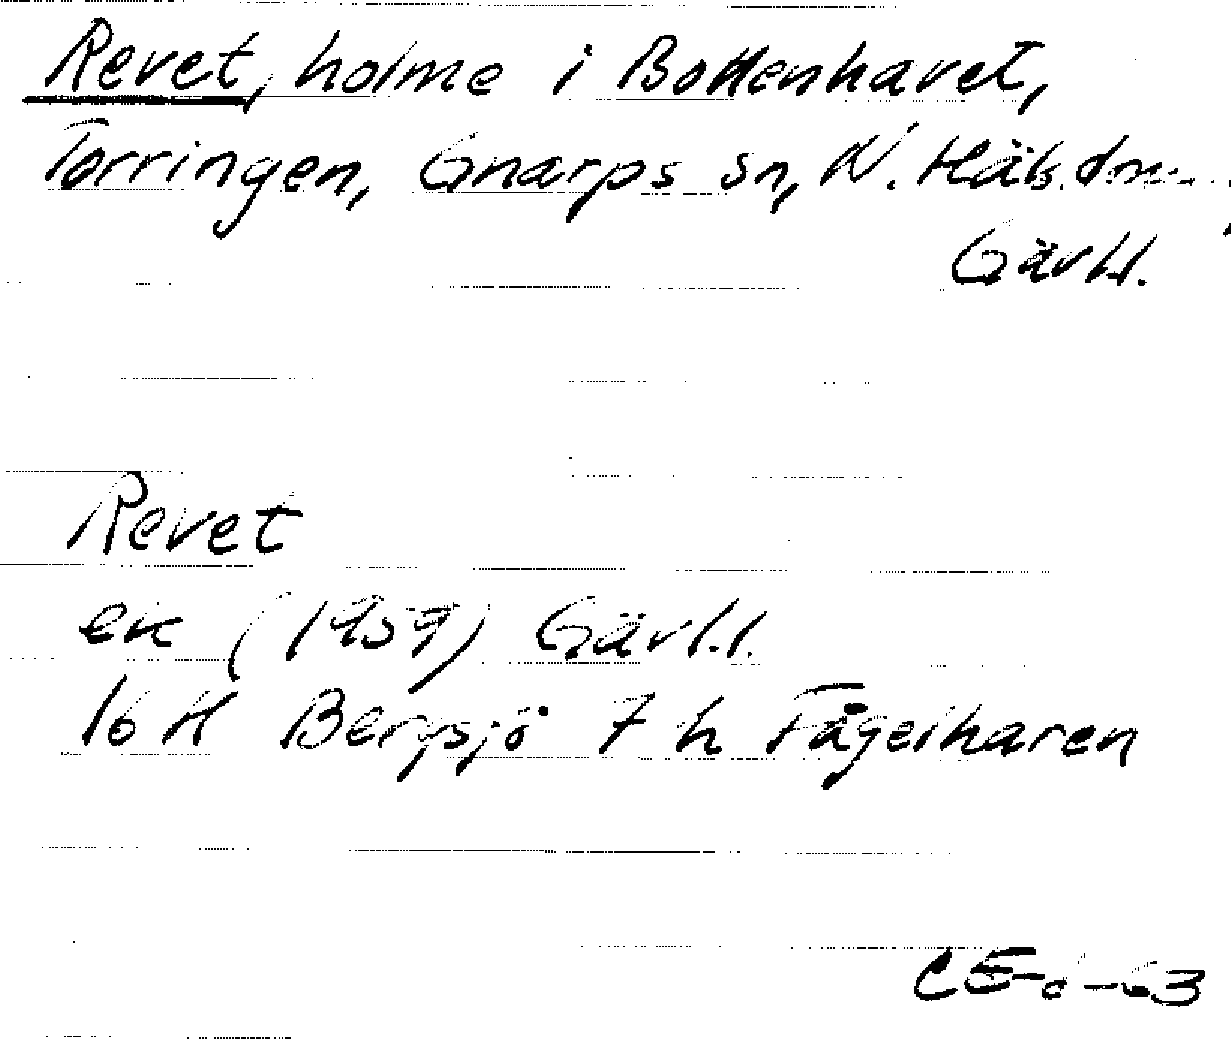 Revet, holme i Bottenhavet,
Torringen, Gnarps sn, N. Häls. dom.
Gävl.l.
Revet
ek (1959) Gävl.l.
16 H Bergsjö 7 h Fågelharen